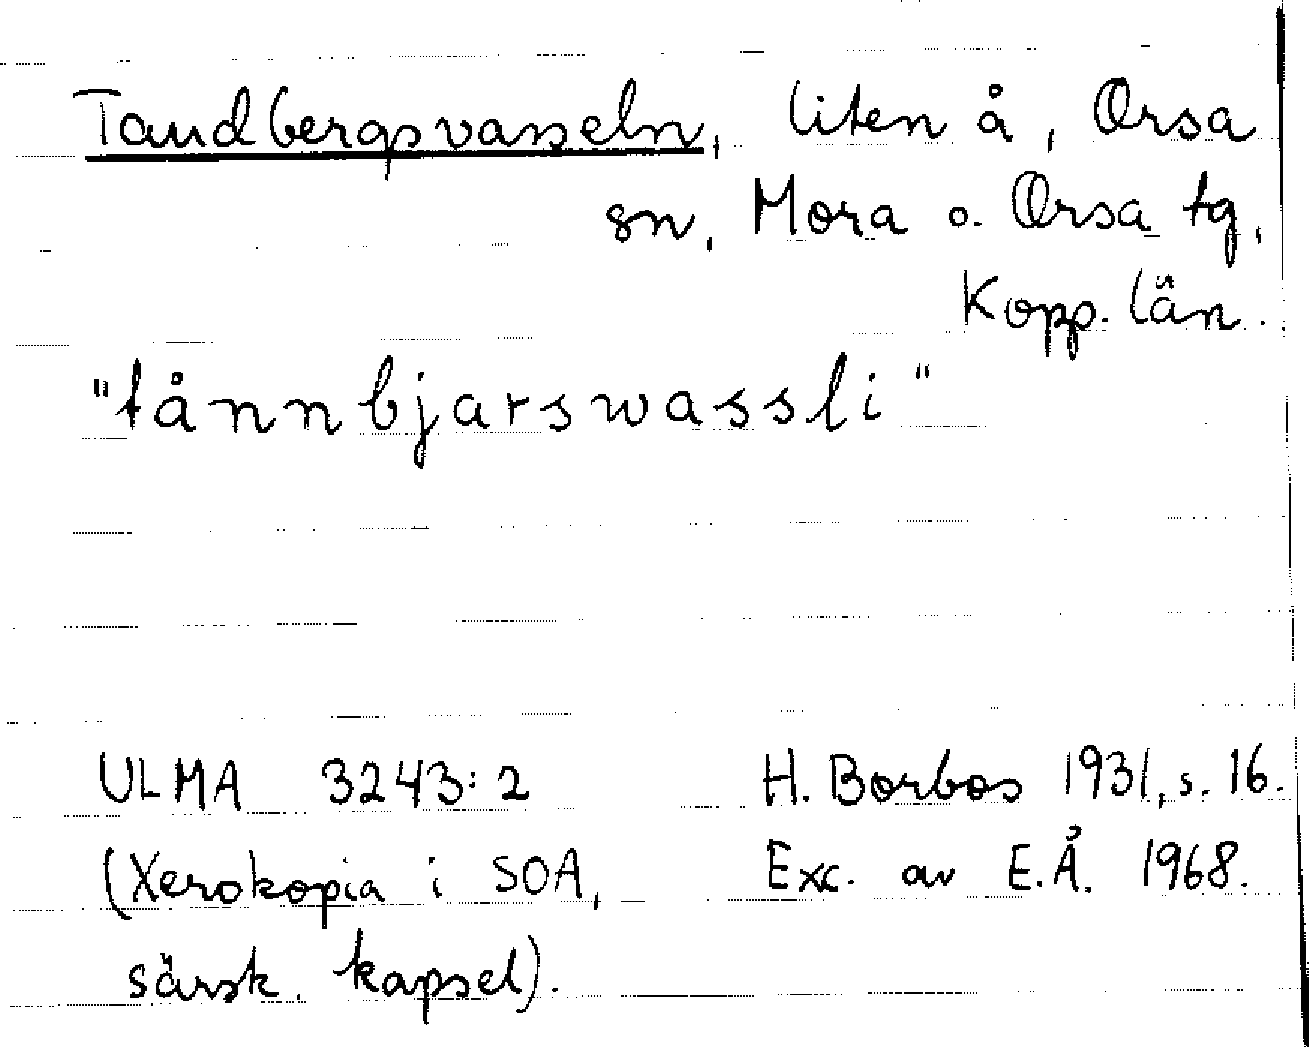 Tandbergsvasseln, liten å, Orsa
sn, Mora o. Orsa tg,
Kopp. län.
"tånnbjarswassli"
ULMA 3243:2
(Xerokopia i SOA,
särsk. kapsel).
H. Borbos 1931, s. 16.
Exc. av E.Å. 1968.